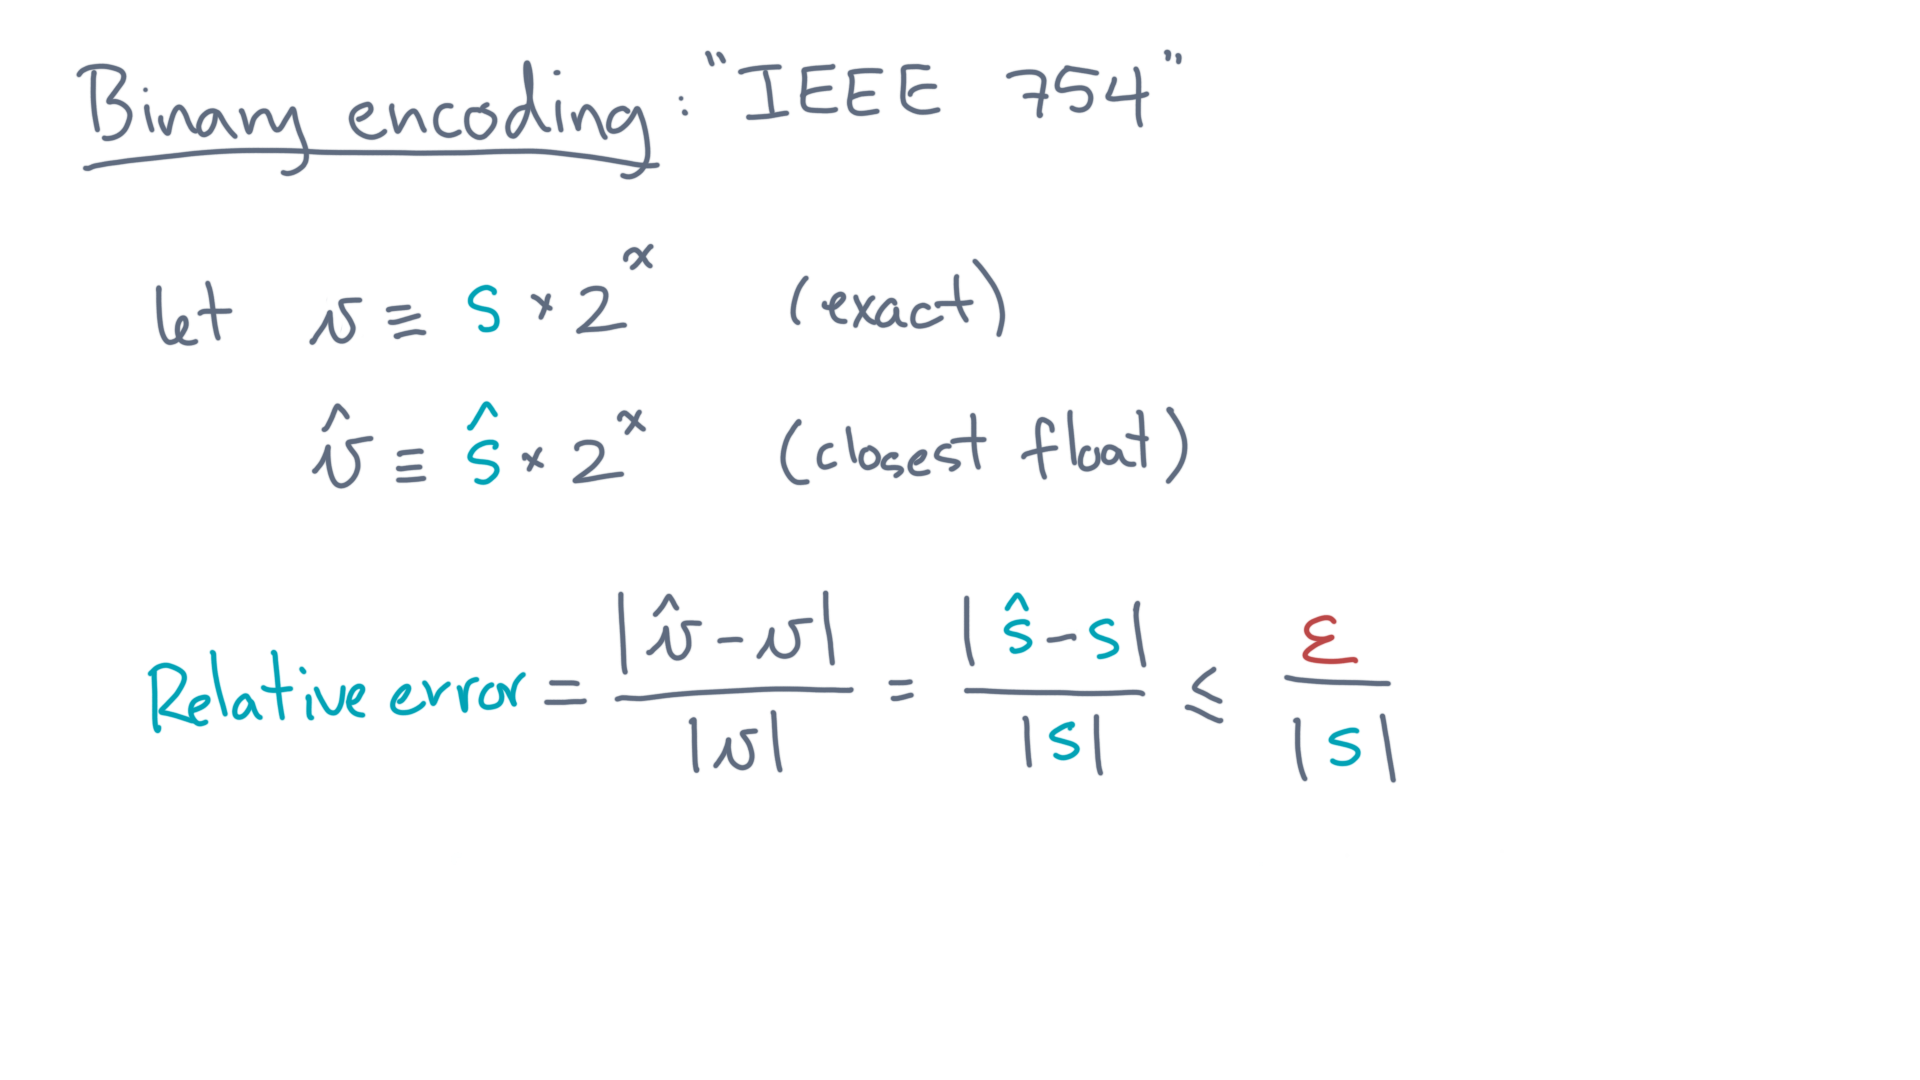 Binary encoding: "IEEE 754"
let v ≡ s × 2^x (exact)
v̂ ≡ ŝ × 2^x (closest float)
Relative error = |v̂ - v| / |v| = |ŝ - s| / |s| ≤ ε / |s|